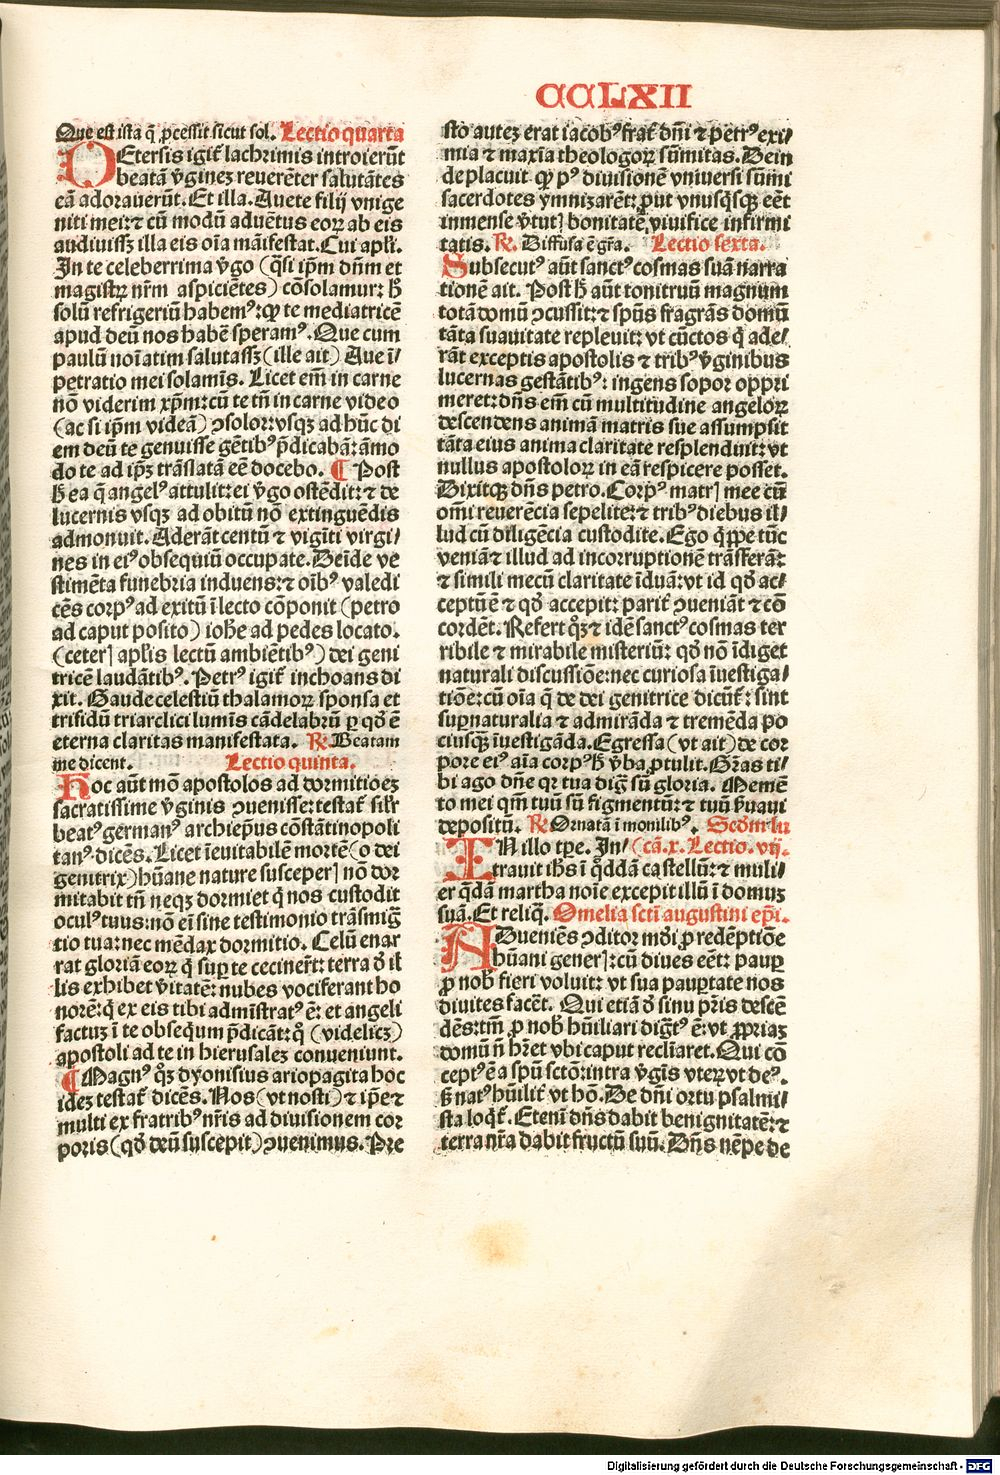 CCLXII
Que est ista q̄ ꝓcessit sicut sol. Lectio quarta
DEtersis igit̄ lachrimis introierūt
beatā v̄ginez reuerēter salutātes
eā adorauerūt. Et illa. Auete filij vnige
niti mei: ⁊ cū modū aduētus eoꝝ ab eis
audiuissꝫ illa eis oīa māifestat. Cui apl̄i.
In te celeberrima v̄go (q̄si ip̄m dn̄m et
magistꝝ nr̄m aspiciētes) cōsolamur: h̄
solū refrigeriū habemꝰ: ꝙ te mediatricē
apud deū nos habē speramꝰ. Que cum
paulū noīatim salutassꝫ (ille ait) Aue ī/
petratio mei solamīs. Licet em̄ in carne
nō viderim xp̄m: cū te tn̄ in carne video
(ac si ip̄m videā) ꝯsolor: vsqꝫ ad hūc di
em deū te genuisse gētibꝰ p̄dicabā: āmo
do te ad ip̄ꝫ trāslatā eē docebo. ¶ Post
h̄ ea q̄ angelꝰ attulit: ei v̄go ostēdit: ⁊ de
lucernis vsqꝫ ad obitū nō extinguēdis
admonuit. Aderāt centū ⁊ vigīti virgi/
nes in eiꝰ obsequiū occupate. Deīde ve
stimēta funebria induens: ⁊ oībꝰ valedi
cēs corpꝰ ad exitū ī lecto cōponit (petro
ad caput posito) ioh̄e ad pedes locato.
(ceteꝝ apl̄is lectū ambiētibꝰ) dei geni
tricē laudātibꝰ. Petrꝰ igit̄ inchoans di
xit. Gaude celestiū thalamoꝝ sponsa et
trifidū triarclici lumīs cādelabrū ꝑ qd̄ ē
eterna claritas manifestata. ℟. Beatam
me dicent. Lectio quinta.
HOc aūt mō apostolos ad dormitioeꝫ
sacratissime v̄ginis ꝯuenisse: testat̄ sil̄r
beatꝰ germanꝰ archiep̄us cōstātinopoli
tanꝰ dicēs. Licet īeuitabilē mortē (o dei
genitrix) hūane nature susceperꝭ nō dor
mitabit tn̄ neqꝫ dormiet q̄ nos custodit
oculꝰ tuus: nō ei̅ sine testimonio trāsmig̅
tio tua: nec mēdax dormitio. Celū enar
rat gloriā eoꝝ q̄ suꝑ te cecinert̄: terra ꝟo il
lis exhibet v̄itatē: nubes vociferant ho
norē: q̄ ex eis tibi admīstratꝰ ē: et angeli
factuꝫ ī te obseq̄um p̄dicāt: q̄ (videlicꝫ)
apostoli ad te in hierusaleꝫ conueniunt.
¶ Magnꝰ qꝫ dyonisius ariopagita hoc
ideꝫ testat̄ dicēs. Nos (vt nosti) ⁊ ip̄e ⁊
multi ex fratribꝰ nr̄is ad diuisionem cor
poris (qd̄ deū suscepit) ꝯuenimus. Pre
sto auteꝫ erat iacobꝰ frat̄ dn̄i ⁊ petrꝰ exi/
mia ⁊ maxīa theologoꝝ sūmitas. Dein
de placuit ꝙ pꝰ diuisionē vniuersi sūmi
sacerdotes ymnizarēt: ꝓut vnusq̄sqꝫ eēt
inmense v̄tutꝭ bonitatē viuifice infirmi
tatis. ℟. Diffusa ē gr̄a. Lectio sexta.
Subsecutꝰ aūt sanctꝰ cosmas suā narra
tionē ait. Post h̄ aūt tonitruū magnum
totā domū ꝯcussit: ⁊ sp̄us fragrās domū
tāta suauitate repleuit: vt cūctos q̄ ade/
rāt exceptis apostolis ⁊ tribꝰ v̄ginibus
lucernas gestātibꝰ: ingens sopor oppri
meret: dn̄s em̄ cū multitudine angeloꝝ
descendens animā matris sue assumpsit
tāta eius anima claritate resplenduit: vt
nullus apostoloꝝ in eā respicere posset.
Dixitqꝫ dn̄s petro. Corpꝰ matrꝭ mee cū
om̄i reuerēcia sepelite: ⁊ tribꝰ diebus il/
lud cū diligēcia custodite. Ego q̄ppe tūc
veniā ⁊ illud ad incorruptionē trāsferā:
⁊ simili mecū claritate īduā: vt id qd̄ ac/
ceptū ē ⁊ qd̄ accepit: parit̄ ꝯueniāt ⁊ cō
cordēt. Refert qꝫ ⁊ idē sanctꝰ cosmas ter
ribile ⁊ mirabile misteriū: qd̄ nō īdiget
naturali discussiōe: nec curiosa īuestiga/
tiōe: cū oīa q̄ de dei genitrice dicūt̄: sint
suꝑnaturalia ⁊ admirāda ⁊ tremēda po
ciusqꝫ īuestigāda. Egressa (vt ait) de cor
pore eiꝰ aīa corpꝰ h̄ v̄ba ꝓtulit. Gr̄as ti/
bi ago dn̄e qr tua dig̅ sū gloria. Memē
to mei qm̄ tuū sū figmentū: ⁊ tuū ẜuaui
depositū. ℟. Ornatā ī monilibꝰ. Scd̄m lu
IN illo tp̄e. In/ (ca. x. Lectio. vij.
trauit ih̄s ī q̄ddā castellū: ⁊ muli/
er q̄dā martha noīe excepit illū ī domuꝫ
suā. Et reliq̄. Omelia sct̄i augustini ep̄i.
ADueniēs ꝯditor mūdi ꝓ redēptiōe
hūani generꝭ: cū diues eēt: pauꝑ
ꝓ nob̄ fieri voluit: vt sua pauꝑtate nos
diuites facēt. Qui etiā ꝟo sinu pr̄is descē
dēs: tm̄ ꝓ nob̄ hūiliari dig̅tꝰ ē: vt ꝓpriaꝫ
domū n̄ hr̄et vbi caput reclīaret. Qui cō
ceptꝰ ē a sp̄u sctō: intra v̄gīs vteꝝ vt deꝰ.
ẜ natꝰ hūilit̄ vt hō. De dn̄i ortu psalmi/
sta loqt̄. Eteni̅ dn̄s dabit benignitatē: ⁊
terra nr̄a dabit fructū suū. Dn̄s nēpe de
Digitalisierung gefördert durch die Deutsche Forschungsgemeinschaft - DFG